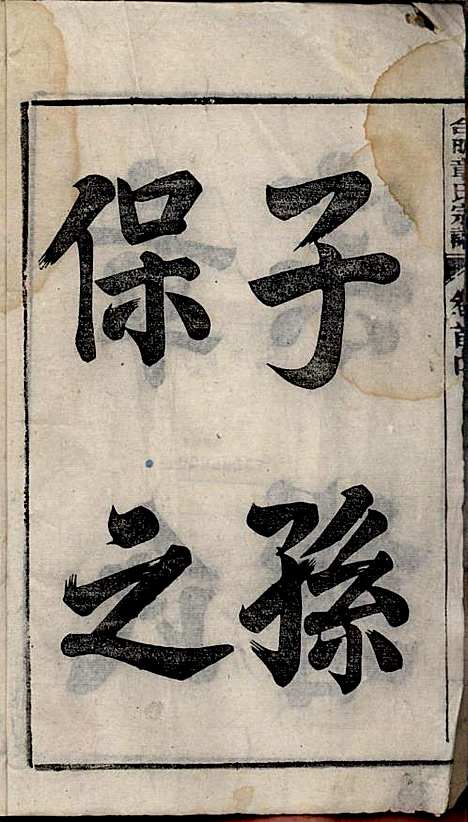 子孫
保之
章氏宗譜
卷首